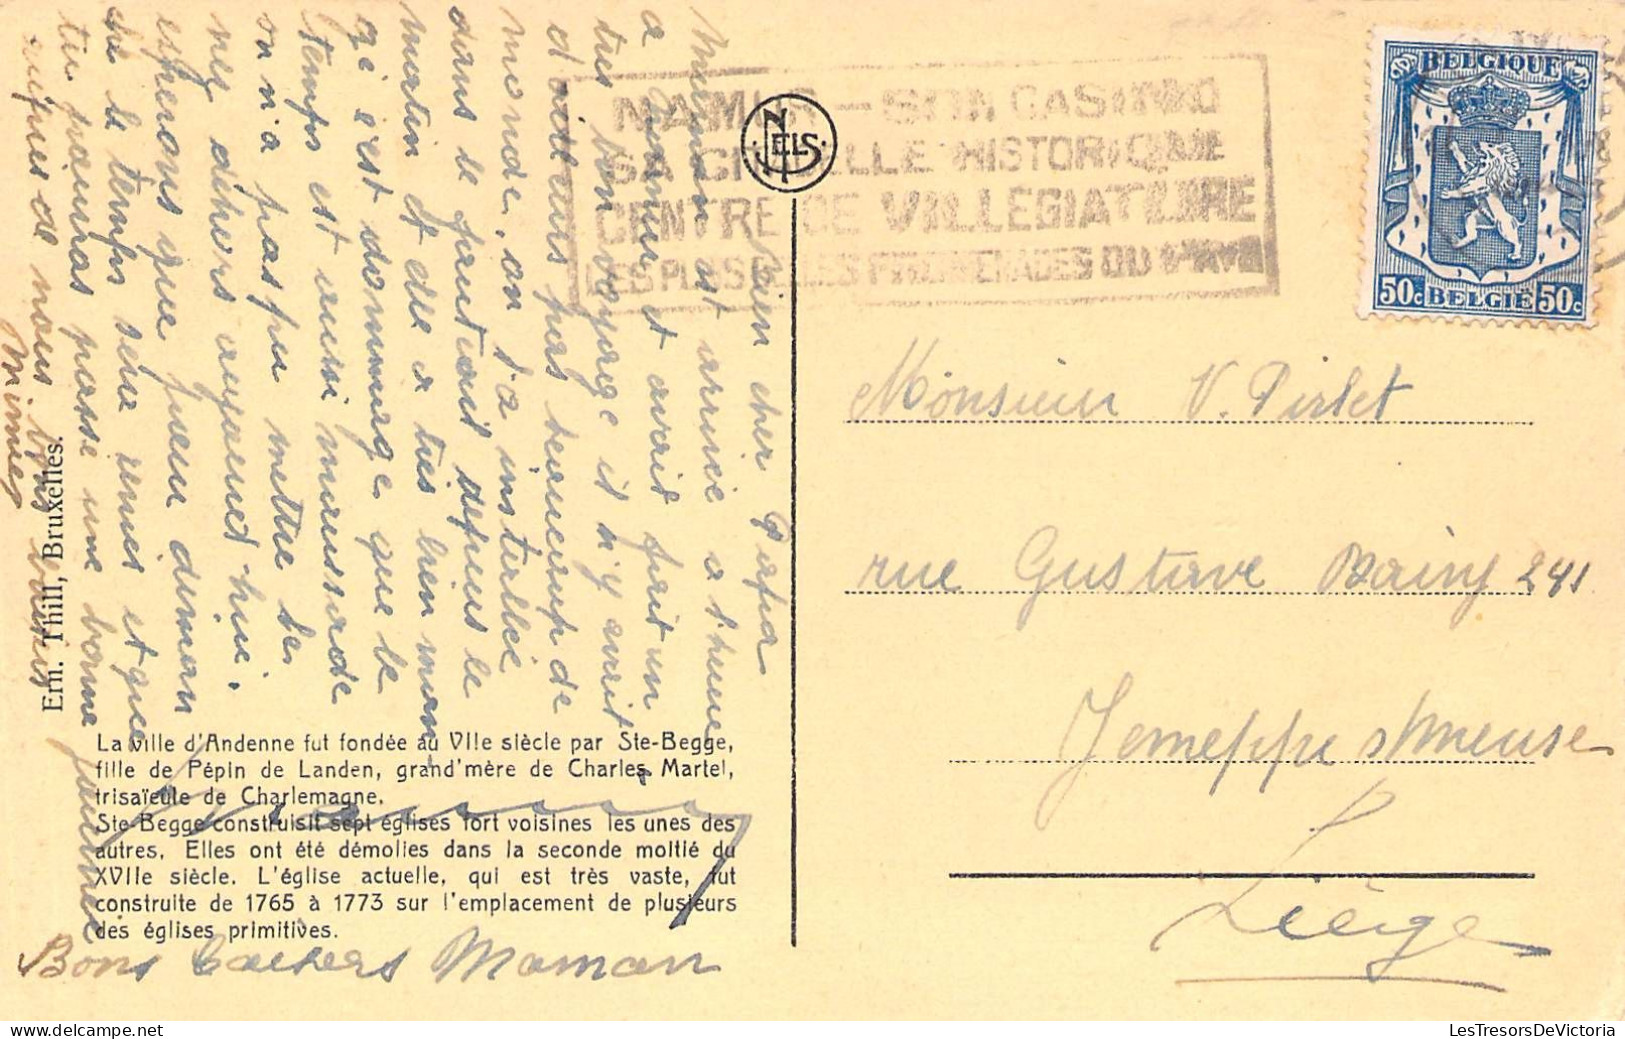 Mon bien cher Papa
Maman est arrivée a l'heure
a Namur et avait fait un
très bon voyage il n'y avait
d'ailleurs pas beaucoup de
monde. on l'a installée
dans le fauteuil depuis le
matin et elle a très bien mangé
qé c'est dommage que le
temps est aussi maussade
on n'a pas pu mettre le
nez dehors aujourd'hui.
espérons que pour demain
le temps sera remis et que
tu pourras passer une bonne journée
de nous tous
Mimie
Bons baisers Maman
Em. Thill, Bruxelles.
La ville d'Andenne fut fondée au VIIe siècle par Ste-Begge,
fille de Pépin de Landen, grand'mère de Charles Martel,
trisaïeule de Charlemagne.
Ste-Begge construisit sept églises fort voisines les unes des
autres. Elles ont été démolies dans la seconde moitié du
XVIIe siècle. L'église actuelle, qui est très vaste, fut
construite de 1765 à 1773 sur l'emplacement de plusieurs
des églises primitives.
NELS
NAMUR — SON CASINO
SA CITADELLE HISTORIQUE
CENTRE DE VILLEGIATURE
LES PLUS BELLES PROMENADES DU PAYS
BELGIQUE
50c BELGIË 50c
Monsieur V. Pirlet
rue Gustave Bainy 241
Jemeppe s/meuse
Liège
LesTresorsDeVictoria